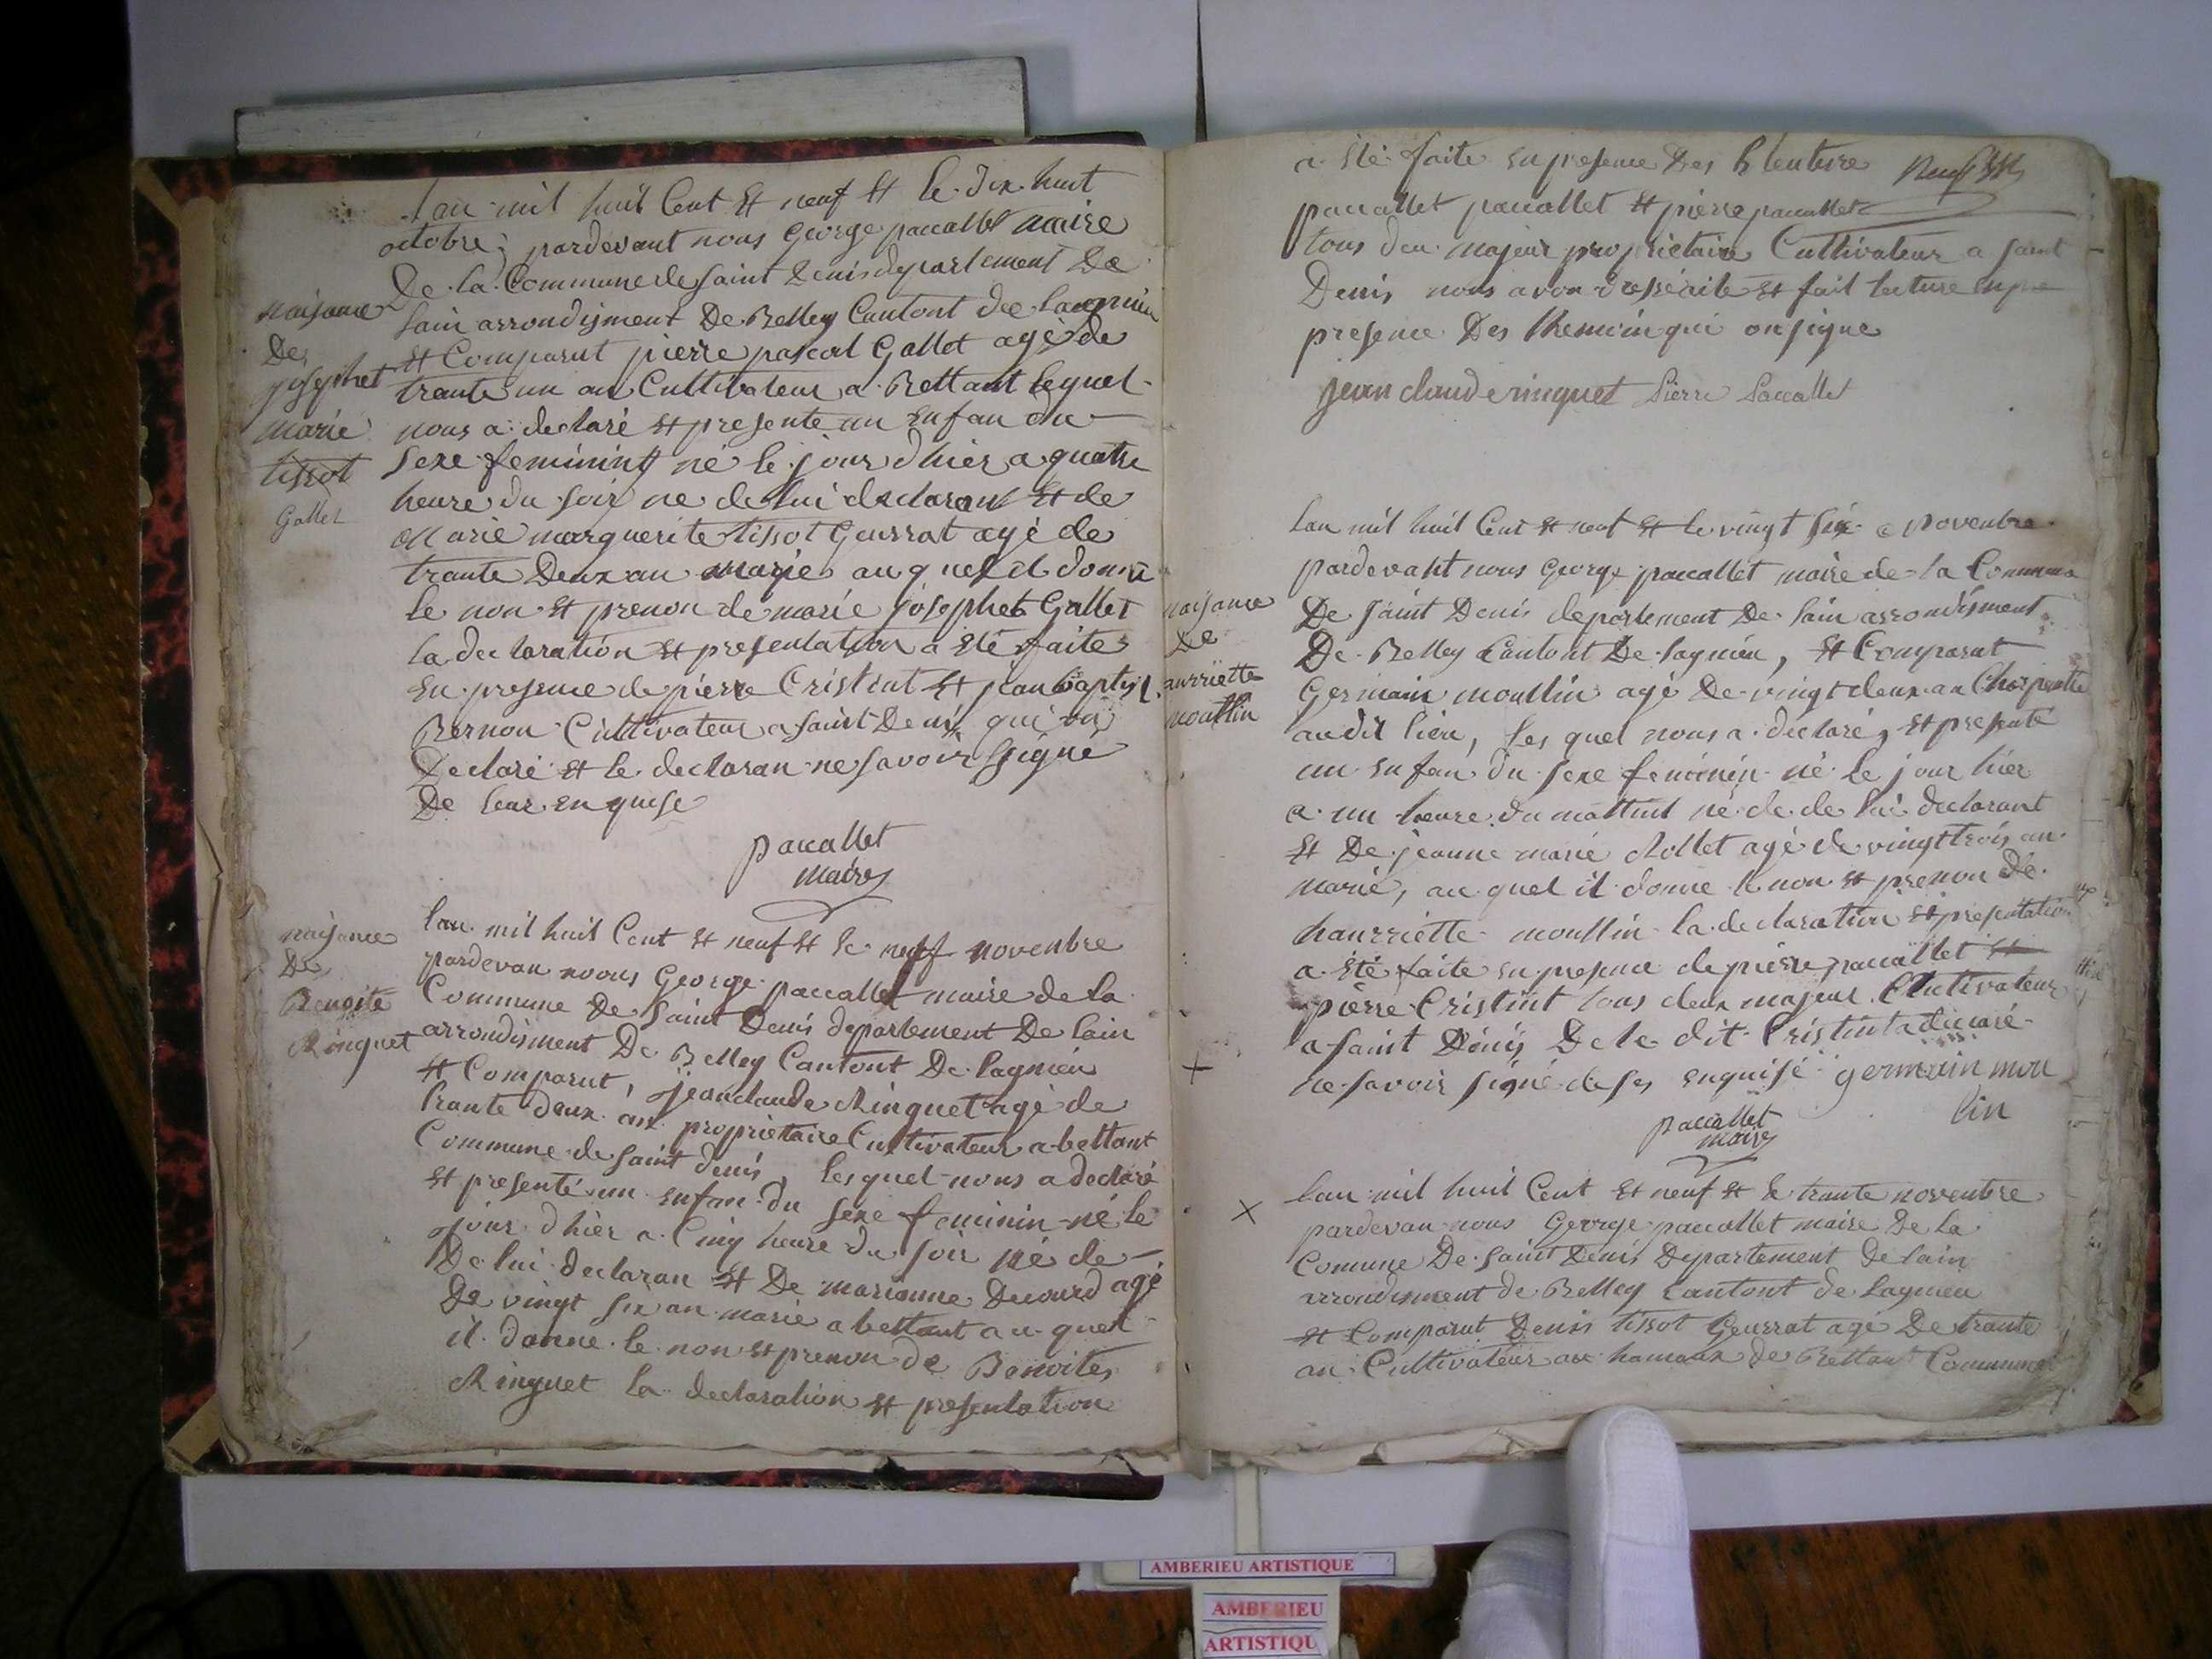 lan mil huit Cent et neuf et le dix huit
octobre; pardevant nous George paccallet maire
De la Commune de saint Denis departement De
lain arrondisment De Belley Cantont de lagnieu
et Comparut pierre pascal Gallet agé de
trante un an Cultivateur a Bettant lequel
nous a declaré et presente un enfan du
sexe feminint né le jour dhier a quatre
heure du soir ne de lui declarant et de
Marie marguerite tissot Geurrat agé de
trante Deux an marié auquel il donne
le non et prenon de marie josephet Gallet
la declaration et presentation a été faite
en presence de pierre Cristint et jean baptist
Bernon Cultivateur a saint Denis qui on
Declaré et le declaran ne savoir signé
De leur enquise
paccallet
maire
naisance
De
josephet
marie
tissot
Gallet
lan mil huit Cent et neuf et le neuf novenbre
pardevan noous George paccallet maire de la
Commune De saint Denis departement De lain
arrondisment De Belley Cantont De lagnieu
et Comparut, jeanclaude Ringuet agé de
trante deux an proprietaire Cultivateur a bettant
Commune de saint denis, lesquel nous a declaré
et presenté un enfan du sexe feminin né le
jour dhier a Cinq heure du soir né de
De lui declaran et De marianne Decourd agé
De vingt six an marié a bettant au quel
il donne le non et prenon de Benoite
Ringuet la declaration et presentation
naisance
De
Benoite
Ringuet
a été faite en presence Des
paccallet paccallet et pierre paccallet
tous deu majeur proprietaire Cultivateur a saint
Denis nous avon dressé et fait lecture
presence Des themoin qui on signe
jean claude ringuet Pierre Paccallet
lan mil huit Cent et neuf et le vingt six novenbre
pardevant nous George paccallet maire de la Commune
De saint Denis departement De lain arrondisment
De Belley Cantont De lagnieu, et Comparut
Germain moullin agé De vingt deux an Charpentie
audit lieu, les quel nous a declaré, et presenté
un enfan du sexe feminin né le jour hier
a un heure du mattint né de de lui declarant
et De jeanne marie Rollet agé de vingt trois an
marié, au quel il donne le non et prenon De
hanrriette moullin la declaration et presentation
a été faite en presence de pierre paccallet et
pierre Cristint tous deux majeur Cultivateur
a saint Denis De le dit Cristint a declaré
ne savoir signé de ses enquise germain mou
lin
paccallet
maire
naisance
De
anrriette
moullin
lan mil huit Cent et neuf et le trante novenbre
pardevan nous George paccallet maire De la
Comune De saint Denis Departement De lain
arrondisment de Belley Cantont de Lagnieu
et Comparut Denis tissot Geurrat agé De trante
an Cultivateur au hamaux de Bettant Commune
AMBERIEU ARTISTIQUE
AMBERIEU
ARTISTIQU